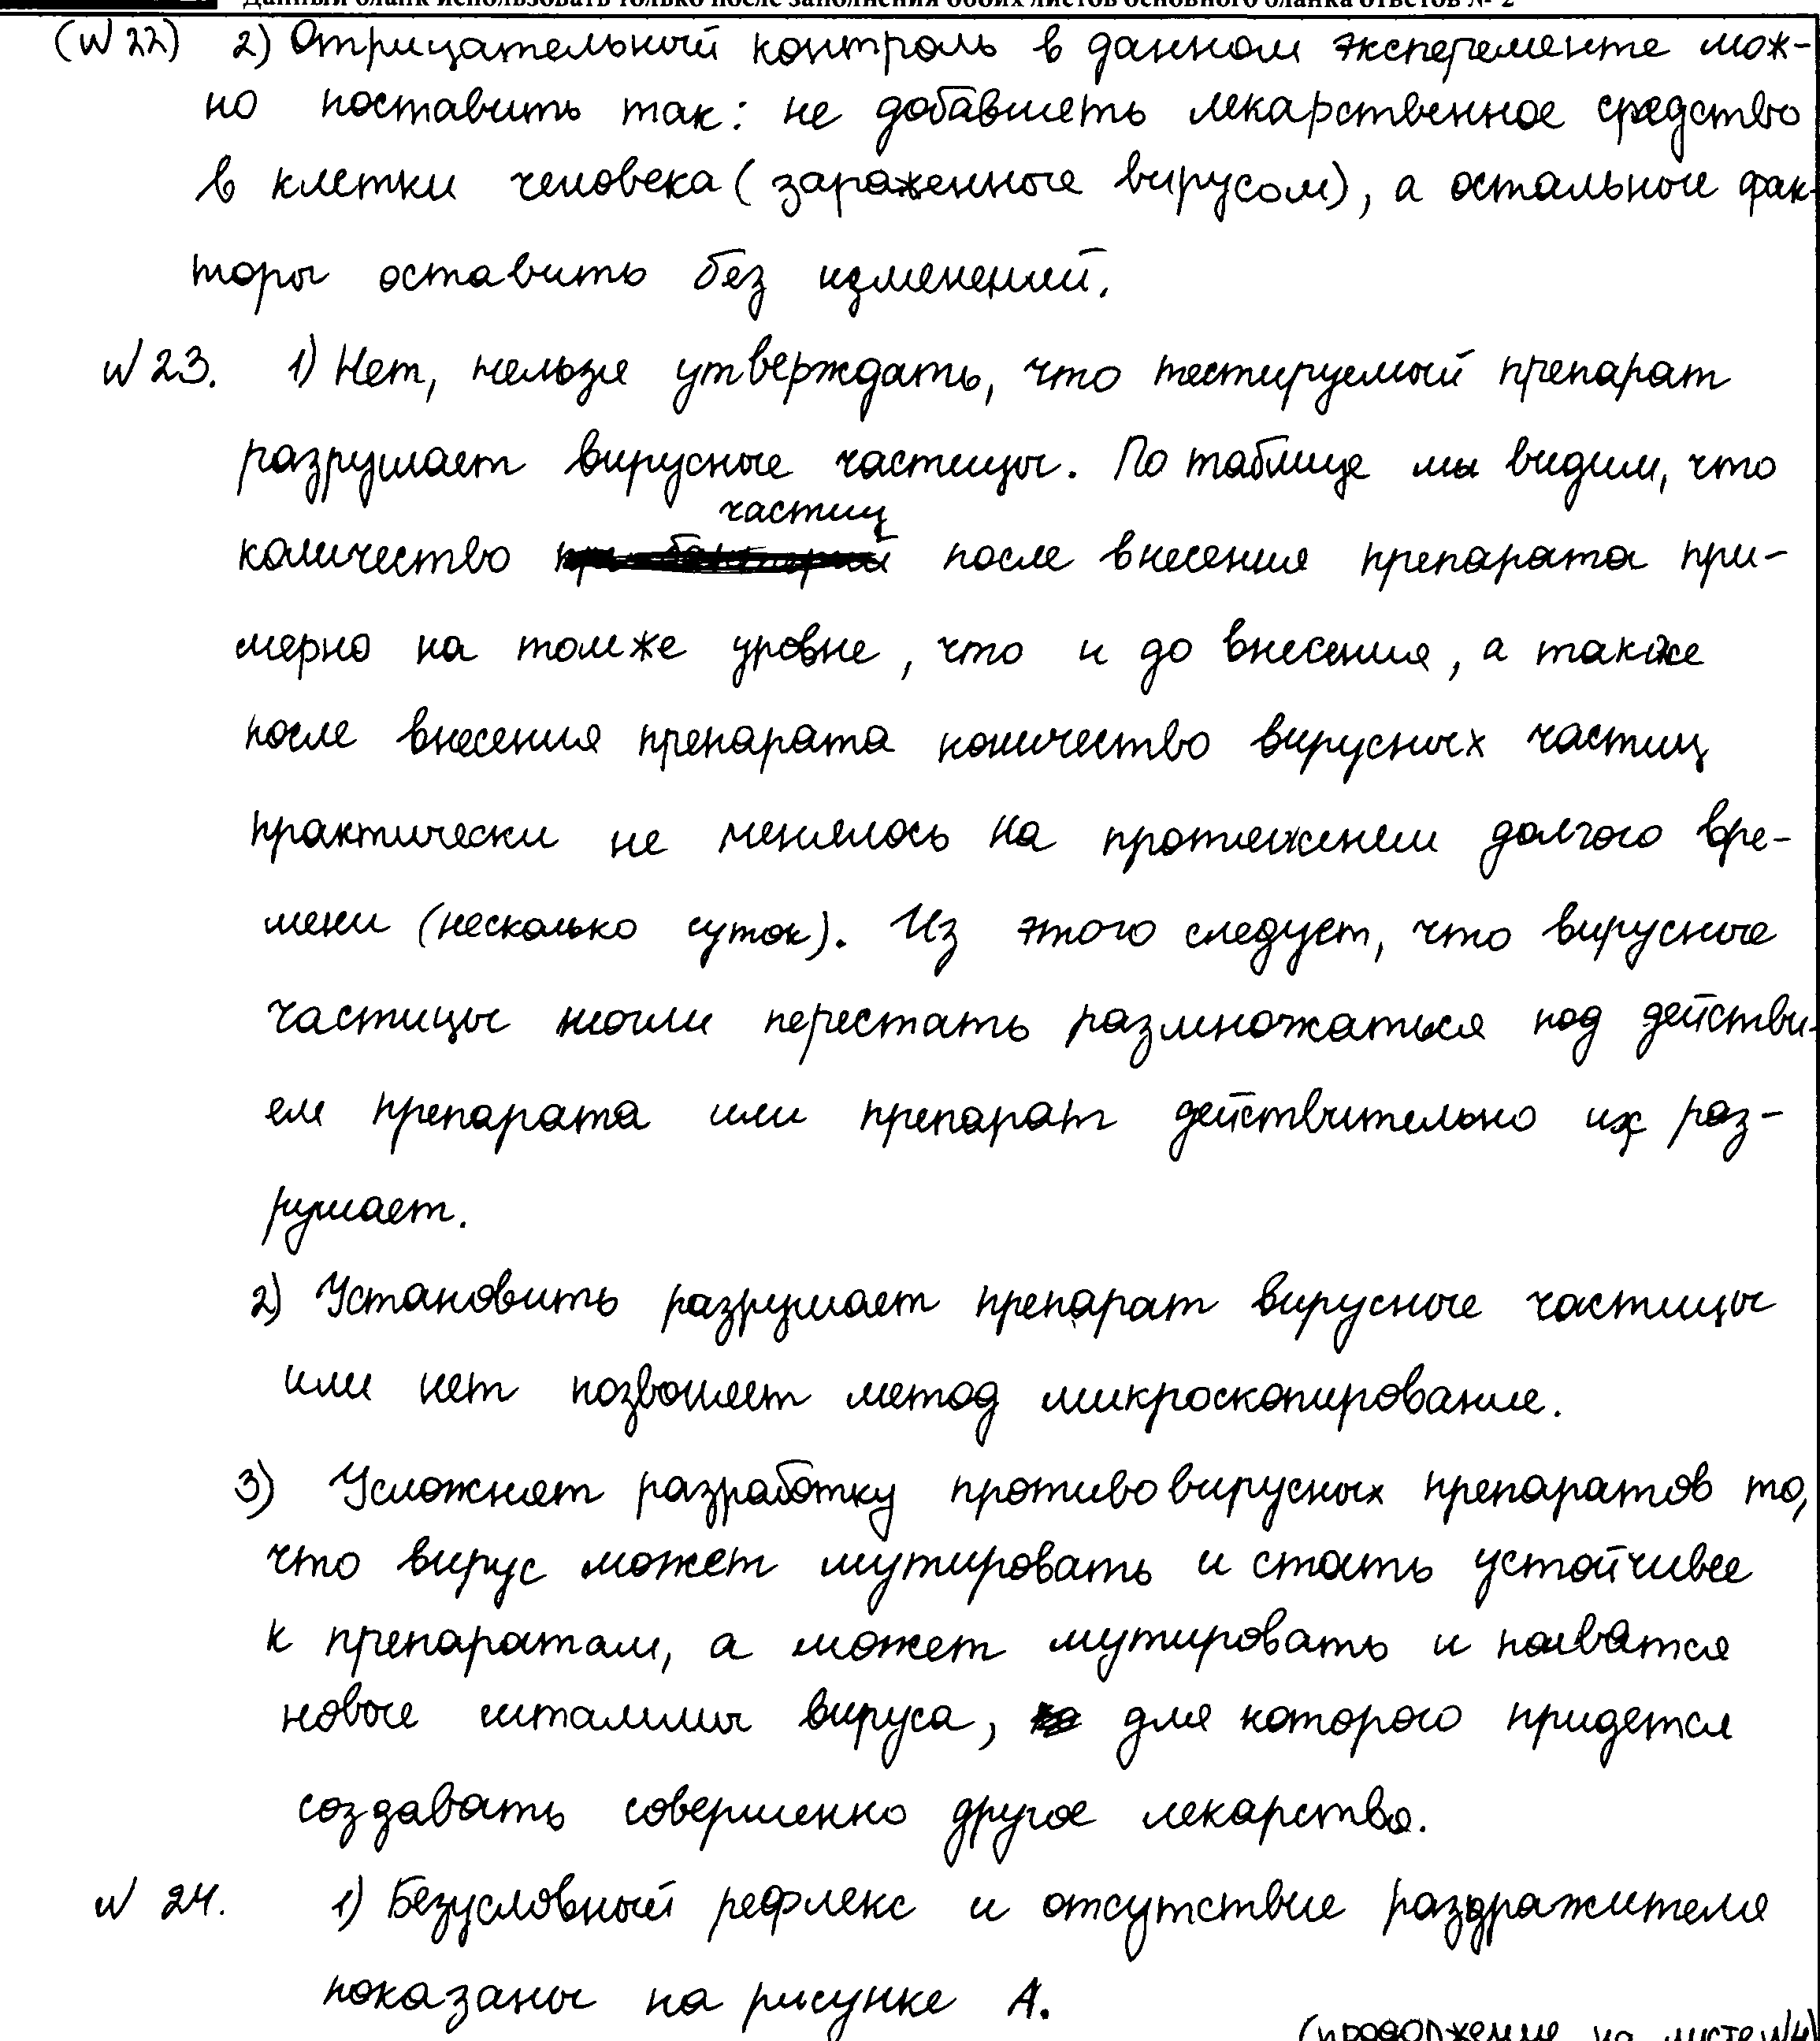 Данный бланк использовать только после заполнения обоих листов основного бланка ответов № 2
(№22) 2) Отрицательный контроль в данном эксперементе мож-
но поставить так: не добавлять лекарственное средство
в клетки человека (зараженные вирусом), а остальные фак-
торы оставить без изменений.
№23. 1) Нет, нельзя утверждать, что тестируемый препарат
разрушает вирусные частицы. По таблице мы видим, что
частиц
количество после внесения препарата при-
мерно на томже уровне, что и до внесения, а также
после внесения препарата количество вирусных частиц
практически не менялось на протяжении долгого вре-
мени (несколько суток). Из этого следует, что вирусные
частицы могли перестать размножаться под действи-
ем препарата или препарат действительно их раз-
рушает.
2) Установить разрушает препарат вирусные частицы
или нет позволяет метод микроскопирование.
3) Усложняет разработку противовирусных препаратов то,
что вирус может мутировать и стать устойчивее
к препаратам, а может мутировать и поя́ватся
новые штаммы вируса, для которого придется
создавать совершенно другое лекарство.
№ 24. 1) Безусловный рефлекс и отсутствие раздражителя
показаны на рисунке А.
(продолжение на листе №4)